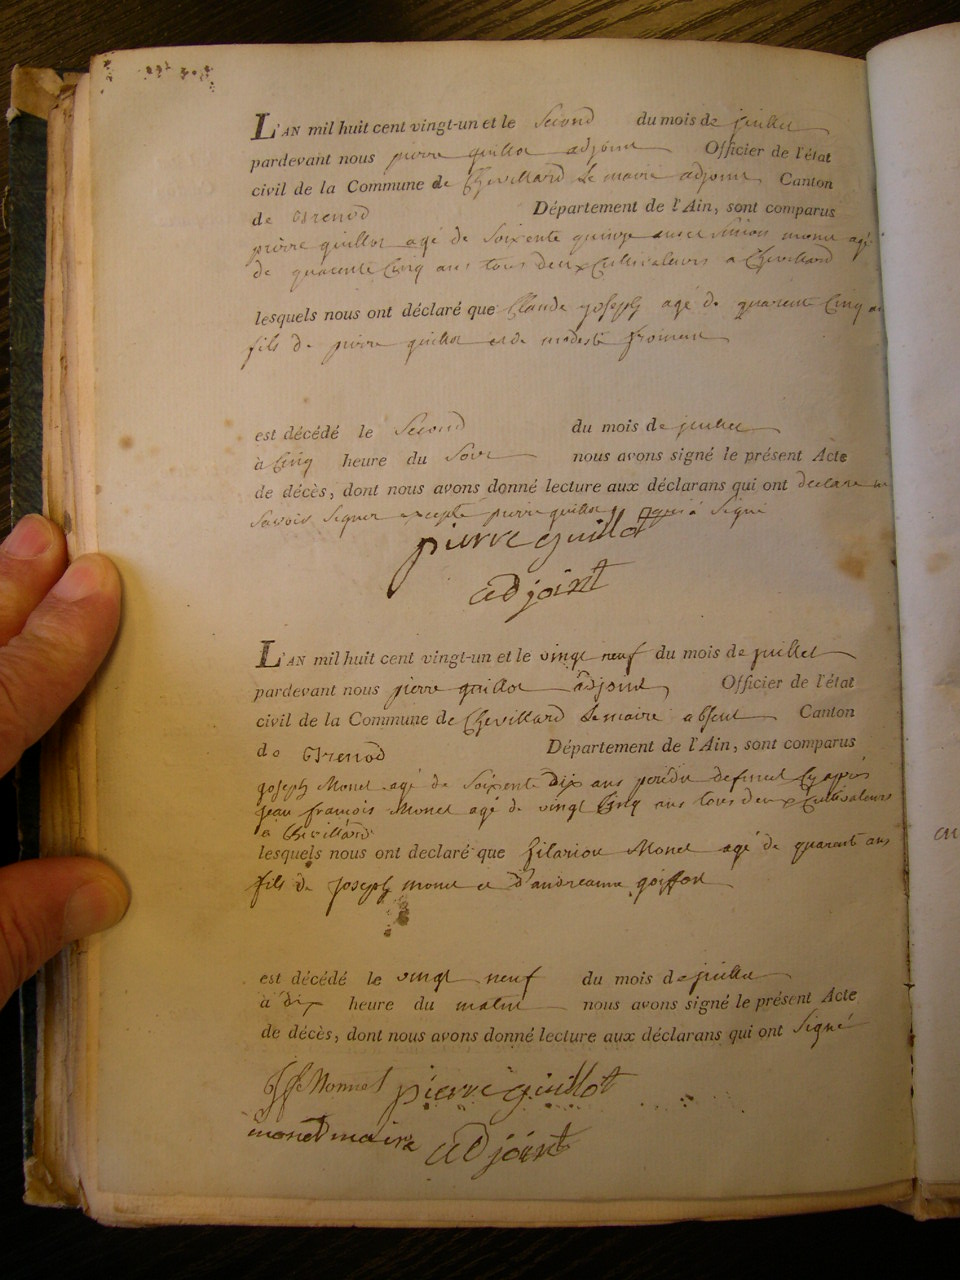 L'AN mil huit cent vingt-un et le Second du mois de juillet
pardevant nous pierre guillot adjoint Officier de l'état
civil de la Commune de Chevillard Le maire adjoint Canton
de Brenod Département de l'Ain, sont comparus
pierre guillot agé de Soixente quinze monet agé
de quarente Cinq ans tous deux Cultivateurs a Chevillard
lesquels nous ont déclaré que Claude joseph agé de quarent Cinq
fils de pierre guillot et de modeste froment
est décédé le Second du mois de juillet
à Cinq heure du Soir nous avons signé le présent Acte
de décès, dont nous avons donné lecture aux déclarans qui ont declare ne
Savoir Signer excepté pierre guillot qui a Signé
pierre guillot
adjoint
L'AN mil huit cent vingt-un et le vingt neuf du mois de juillet
pardevant nous pierre guillot adjoint Officier de l'état
civil de la Commune de Chevillard Le maire absent Canton
do Brenod Département de l'Ain, sont comparus
joseph Monet agé de Soixente Dix ans du defunct Cy apprès
jean françois Monet agé de vingt Cinq ans tous deux Cultivateurs
a Chevillard
lesquels nous ont déclaré que hilarion Monet agé de quarente ans
fils de Joseph monet et d'andreanne goiffon
est décédé le vingt neuf du mois de juillet
à dix heure du matin nous avons signé le présent Acte
de décès, dont nous avons donné lecture aux déclarans qui ont Signé
Monnet pierre guillot
monet maire adjoint